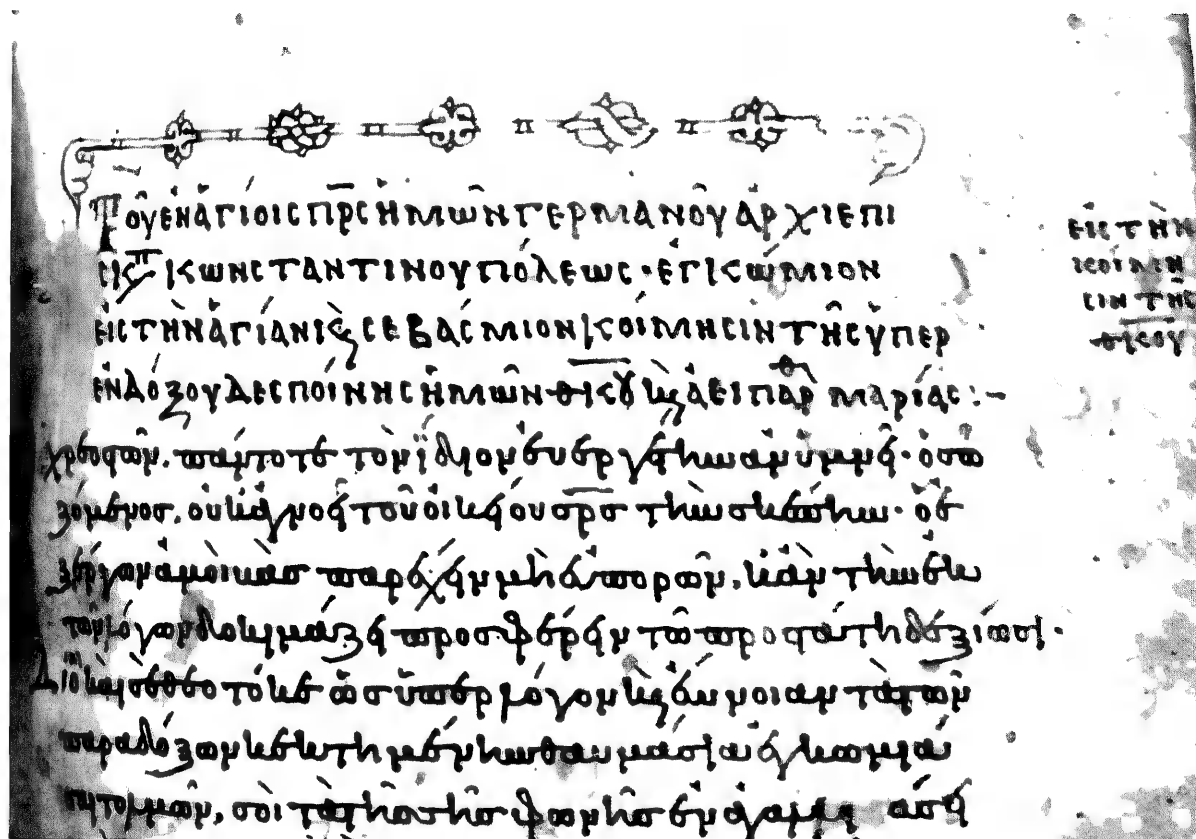 Τοῦ ἐν ἁγίοις πρς ἡμῶν Γερμανοῦ ἀρχιεπι
σκπ κωνσταντινουπόλεως· ἐγκώμιον
εἰς τὴν ἁγίαν κ̀ σεβάσμιον κοίμησιν τῆς ὑπερ
ἐνδόξου δεσποίνης ἡμῶν θκου κ̀ ἀειπαρθ μαρίας:-
χρεοστῶν, πάντοτε τὸν ἴδιον εὐεργέτην ἀνυμνεῖ· ὁ σω
ζόμενος, οὐκ ἀγνοεῖ τοῦ οἰκείου σρς τὴν σκέπην· ὁ ἐ
ξ ἔργων ἀμοιβὰς παρέχειν μὴ εὐπορῶν, κἂν τὴν ἐκ
τῶν λόγων δοκιμάζει προσφέρειν τῶ προστάτη δεξίωσι·
Διὸ καὶ θεοτόκε ὡς ὑπὲρ λόγον κ̀ ἔννοιαν τὰ τῶν
παραδόξων κεκτημένην θαυμάσια ἐγκωμιά
τολμῶν, σοὶ τὰ τῆς τῆς φωνῆς
εἰς τὴν
κοίμη
σιν τῆς
θκου